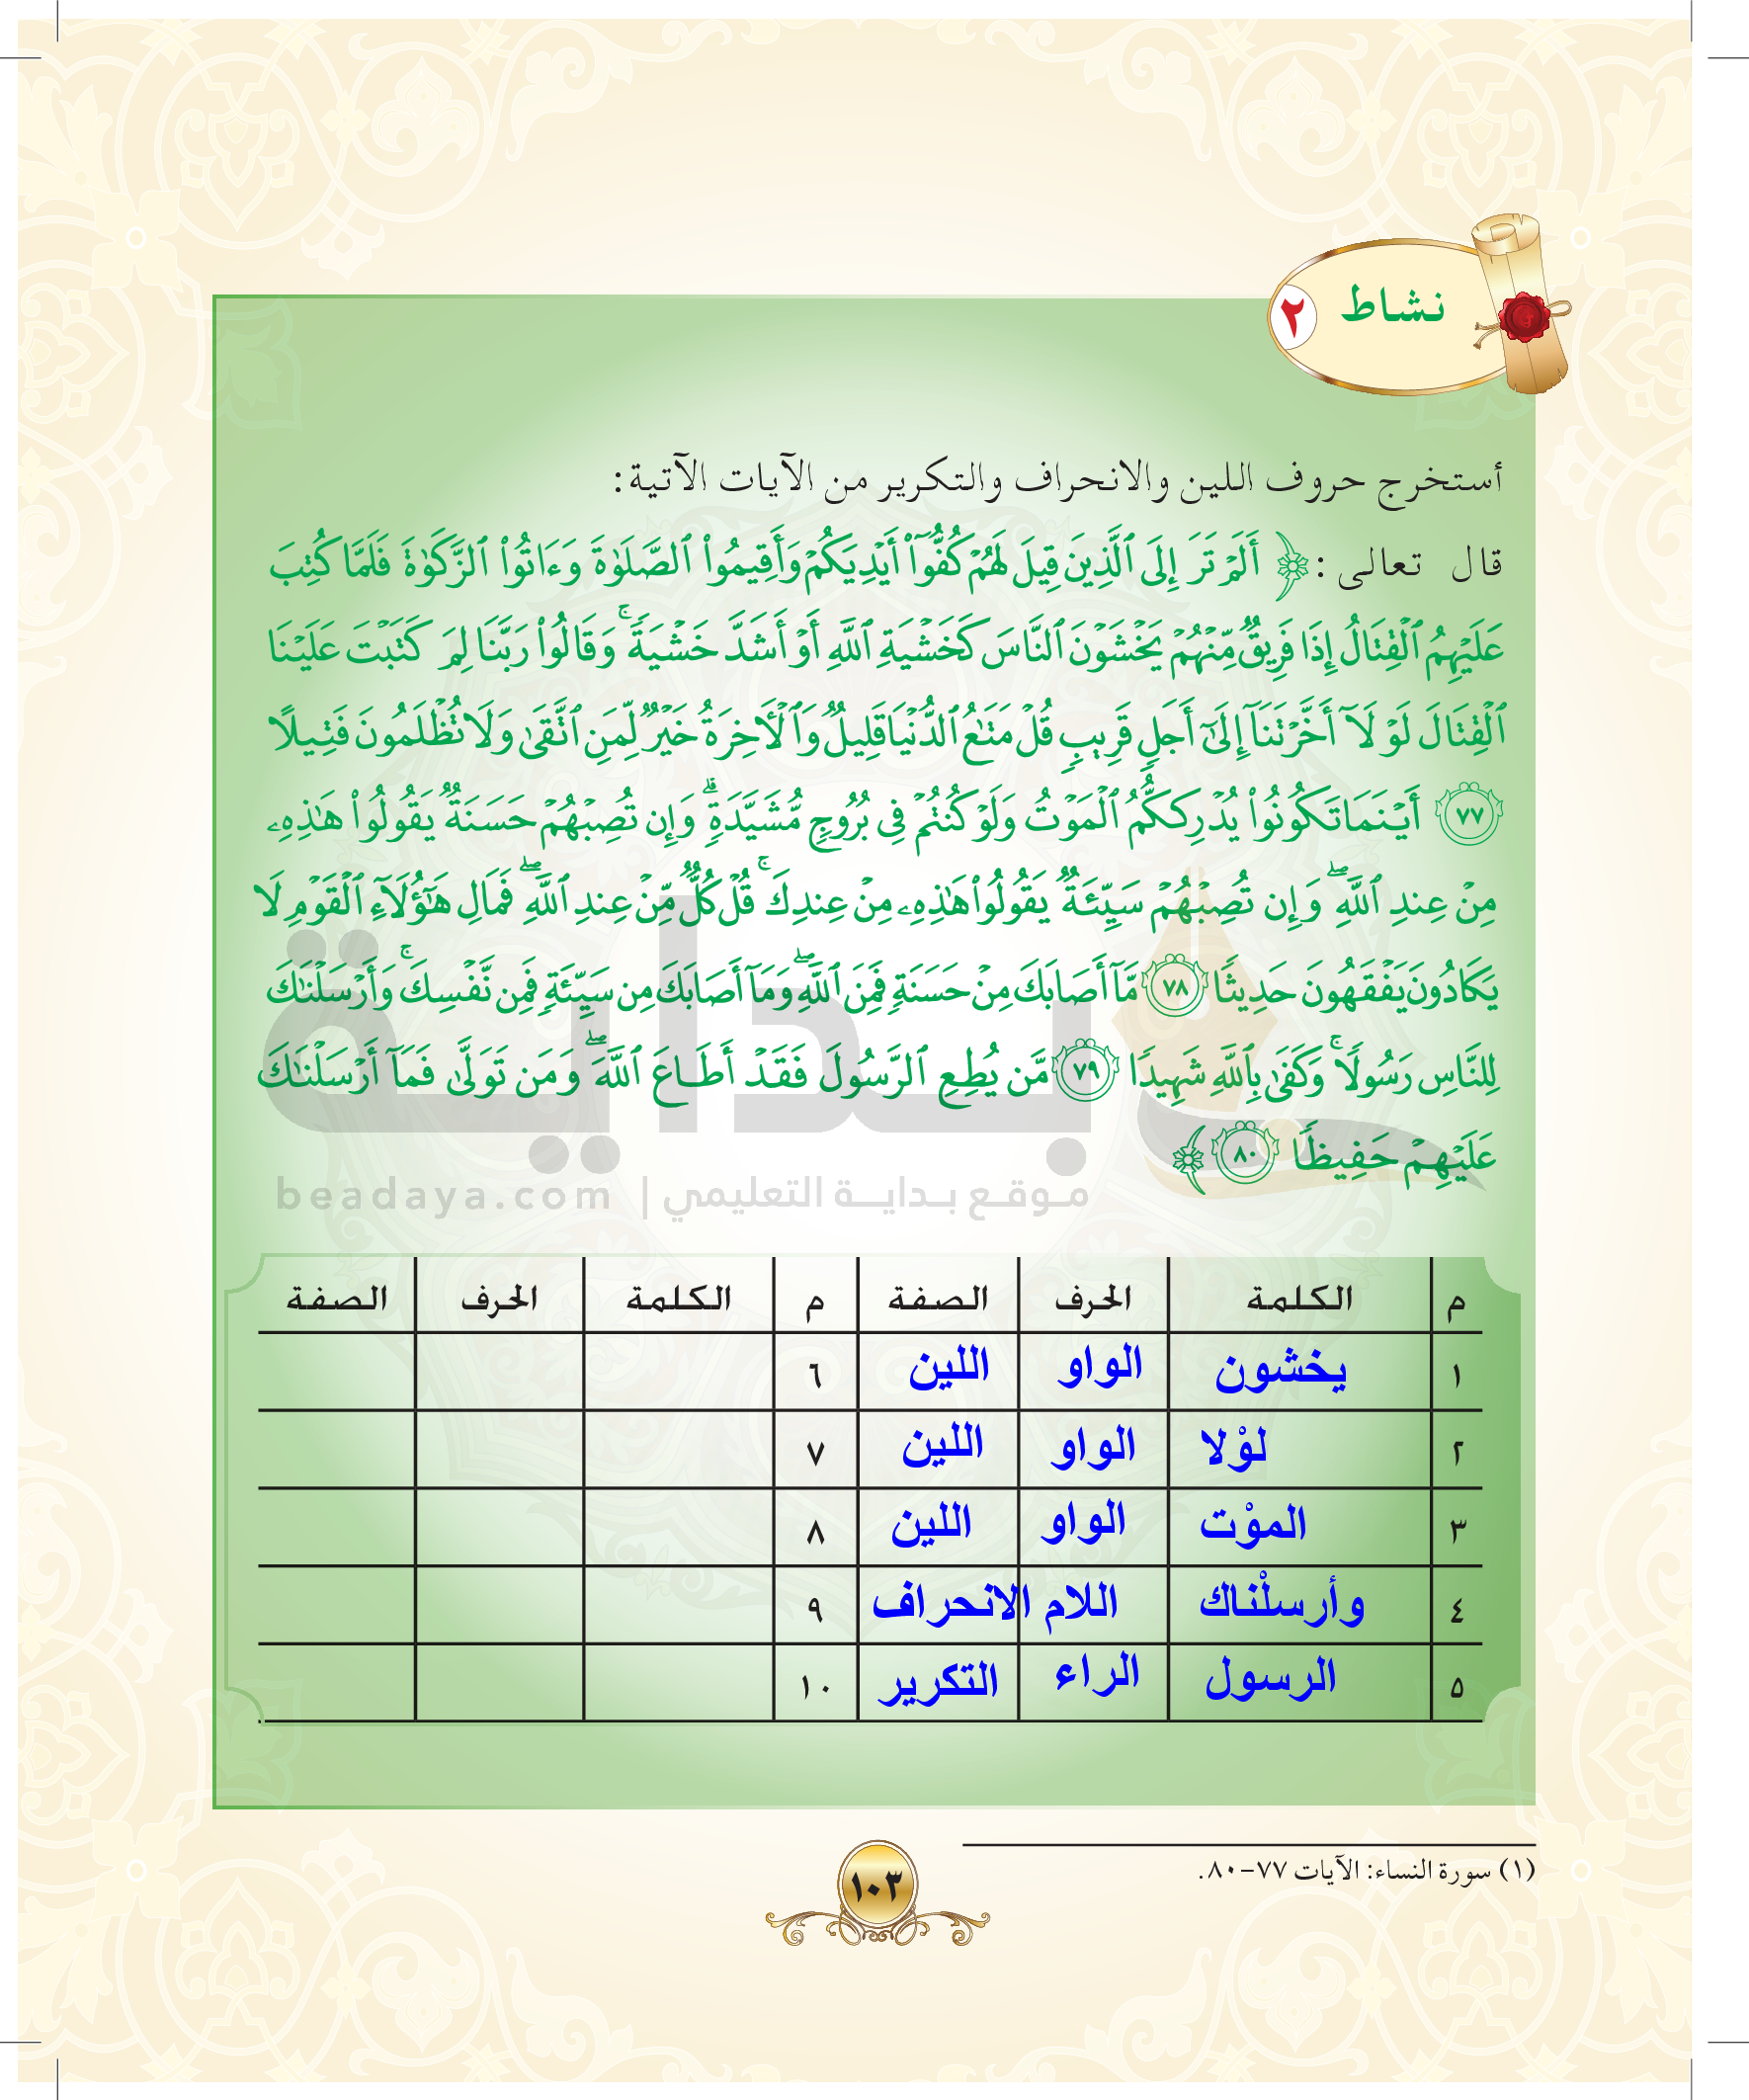 نشاط ٢
أستخرج حروف اللين والانحراف والتكرير من الآيات الآتية:
قال تعالى: ﴿ أَلَمْ تَرَ إِلَى ٱلَّذِينَ قِيلَ لَهُمْ كُفُّوٓا۟ أَيْدِيَكُمْ وَأَقِيمُوا۟ ٱلصَّلَوٰةَ وَءَاتُوا۟ ٱلزَّكَوٰةَ فَلَمَّا كُتِبَ
عَلَيْهِمُ ٱلْقِتَالُ إِذَا فَرِيقٌ مِّنْهُمْ يَخْشَوْنَ ٱلنَّاسَ كَخَشْيَةِ ٱللَّهِ أَوْ أَشَدَّ خَشْيَةً ۚ وَقَالُوا۟ رَبَّنَا لِمَ كَتَبْتَ عَلَيْنَا
ٱلْقِتَالَ لَوْلَآ أَخَّرْتَنَآ إِلَىٰٓ أَجَلٍ قَرِيبٍ قُلْ مَتَٰعُ ٱلدُّنْيَا قَلِيلٌ وَٱلْءَاخِرَةُ خَيْرٌ لِّمَنِ ٱتَّقَىٰ وَلَا تُظْلَمُونَ فَتِيلًا
٧٧ أَيْنَمَا تَكُونُوا۟ يُدْرِككُّمُ ٱلْمَوْتُ وَلَوْ كُنتُمْ فِى بُرُوجٍ مُّشَيَّدَةٍ ۗ وَإِن تُصِبْهُمْ حَسَنَةٌ يَقُولُوا۟ هَٰذِهِۦ
مِنْ عِندِ ٱللَّهِ ۖ وَإِن تُصِبْهُمْ سَيِّئَةٌ يَقُولُوا۟ هَٰذِهِۦ مِنْ عِندِكَ ۚ قُلْ كُلٌّ مِّنْ عِندِ ٱللَّهِ ۖ فَمَالِ هَٰٓؤُلَآءِ ٱلْقَوْمِ لَا
يَكَادُونَ يَفْقَهُونَ حَدِيثًا ٧٨ مَّآ أَصَابَكَ مِنْ حَسَنَةٍ فَمِنَ ٱللَّهِ ۖ وَمَآ أَصَابَكَ مِن سَيِّئَةٍ فَمِن نَّفْسِكَ ۚ وَأَرْسَلْنَٰكَ
لِلنَّاسِ رَسُولًا ۚ وَكَفَىٰ بِٱللَّهِ شَهِيدًا ٧٩ مَّن يُطِعِ ٱلرَّسُولَ فَقَدْ أَطَاعَ ٱللَّهَ ۖ وَمَن تَوَلَّىٰ فَمَآ أَرْسَلْنَٰكَ
عَلَيْهِمْ حَفِيظًا ٨٠ ﴾
بداية
موقع بداية التعليمي | beadaya.com
م الكلمة الحرف الصفة م الكلمة الحرف الصفة
١ يخشون الواو اللين ٦
٢ لوْلا الواو اللين ٧
٣ الموْت الواو اللين ٨
٤ وأرسلْناك اللام الانحراف ٩
٥ الرسول الراء التكرير ١٠
(١) سورة النساء: الآيات ٧٧-٨٠.
١٠٣